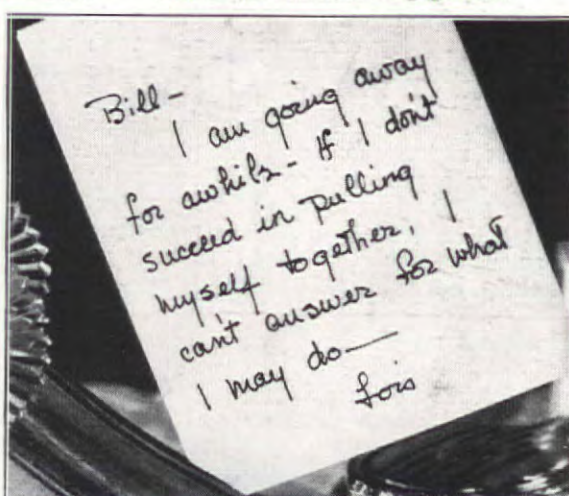 Bill-
I am going away
for awhile- If I don't
succeed in pulling
myself together, I
can't answer for what
I may do—
Lois